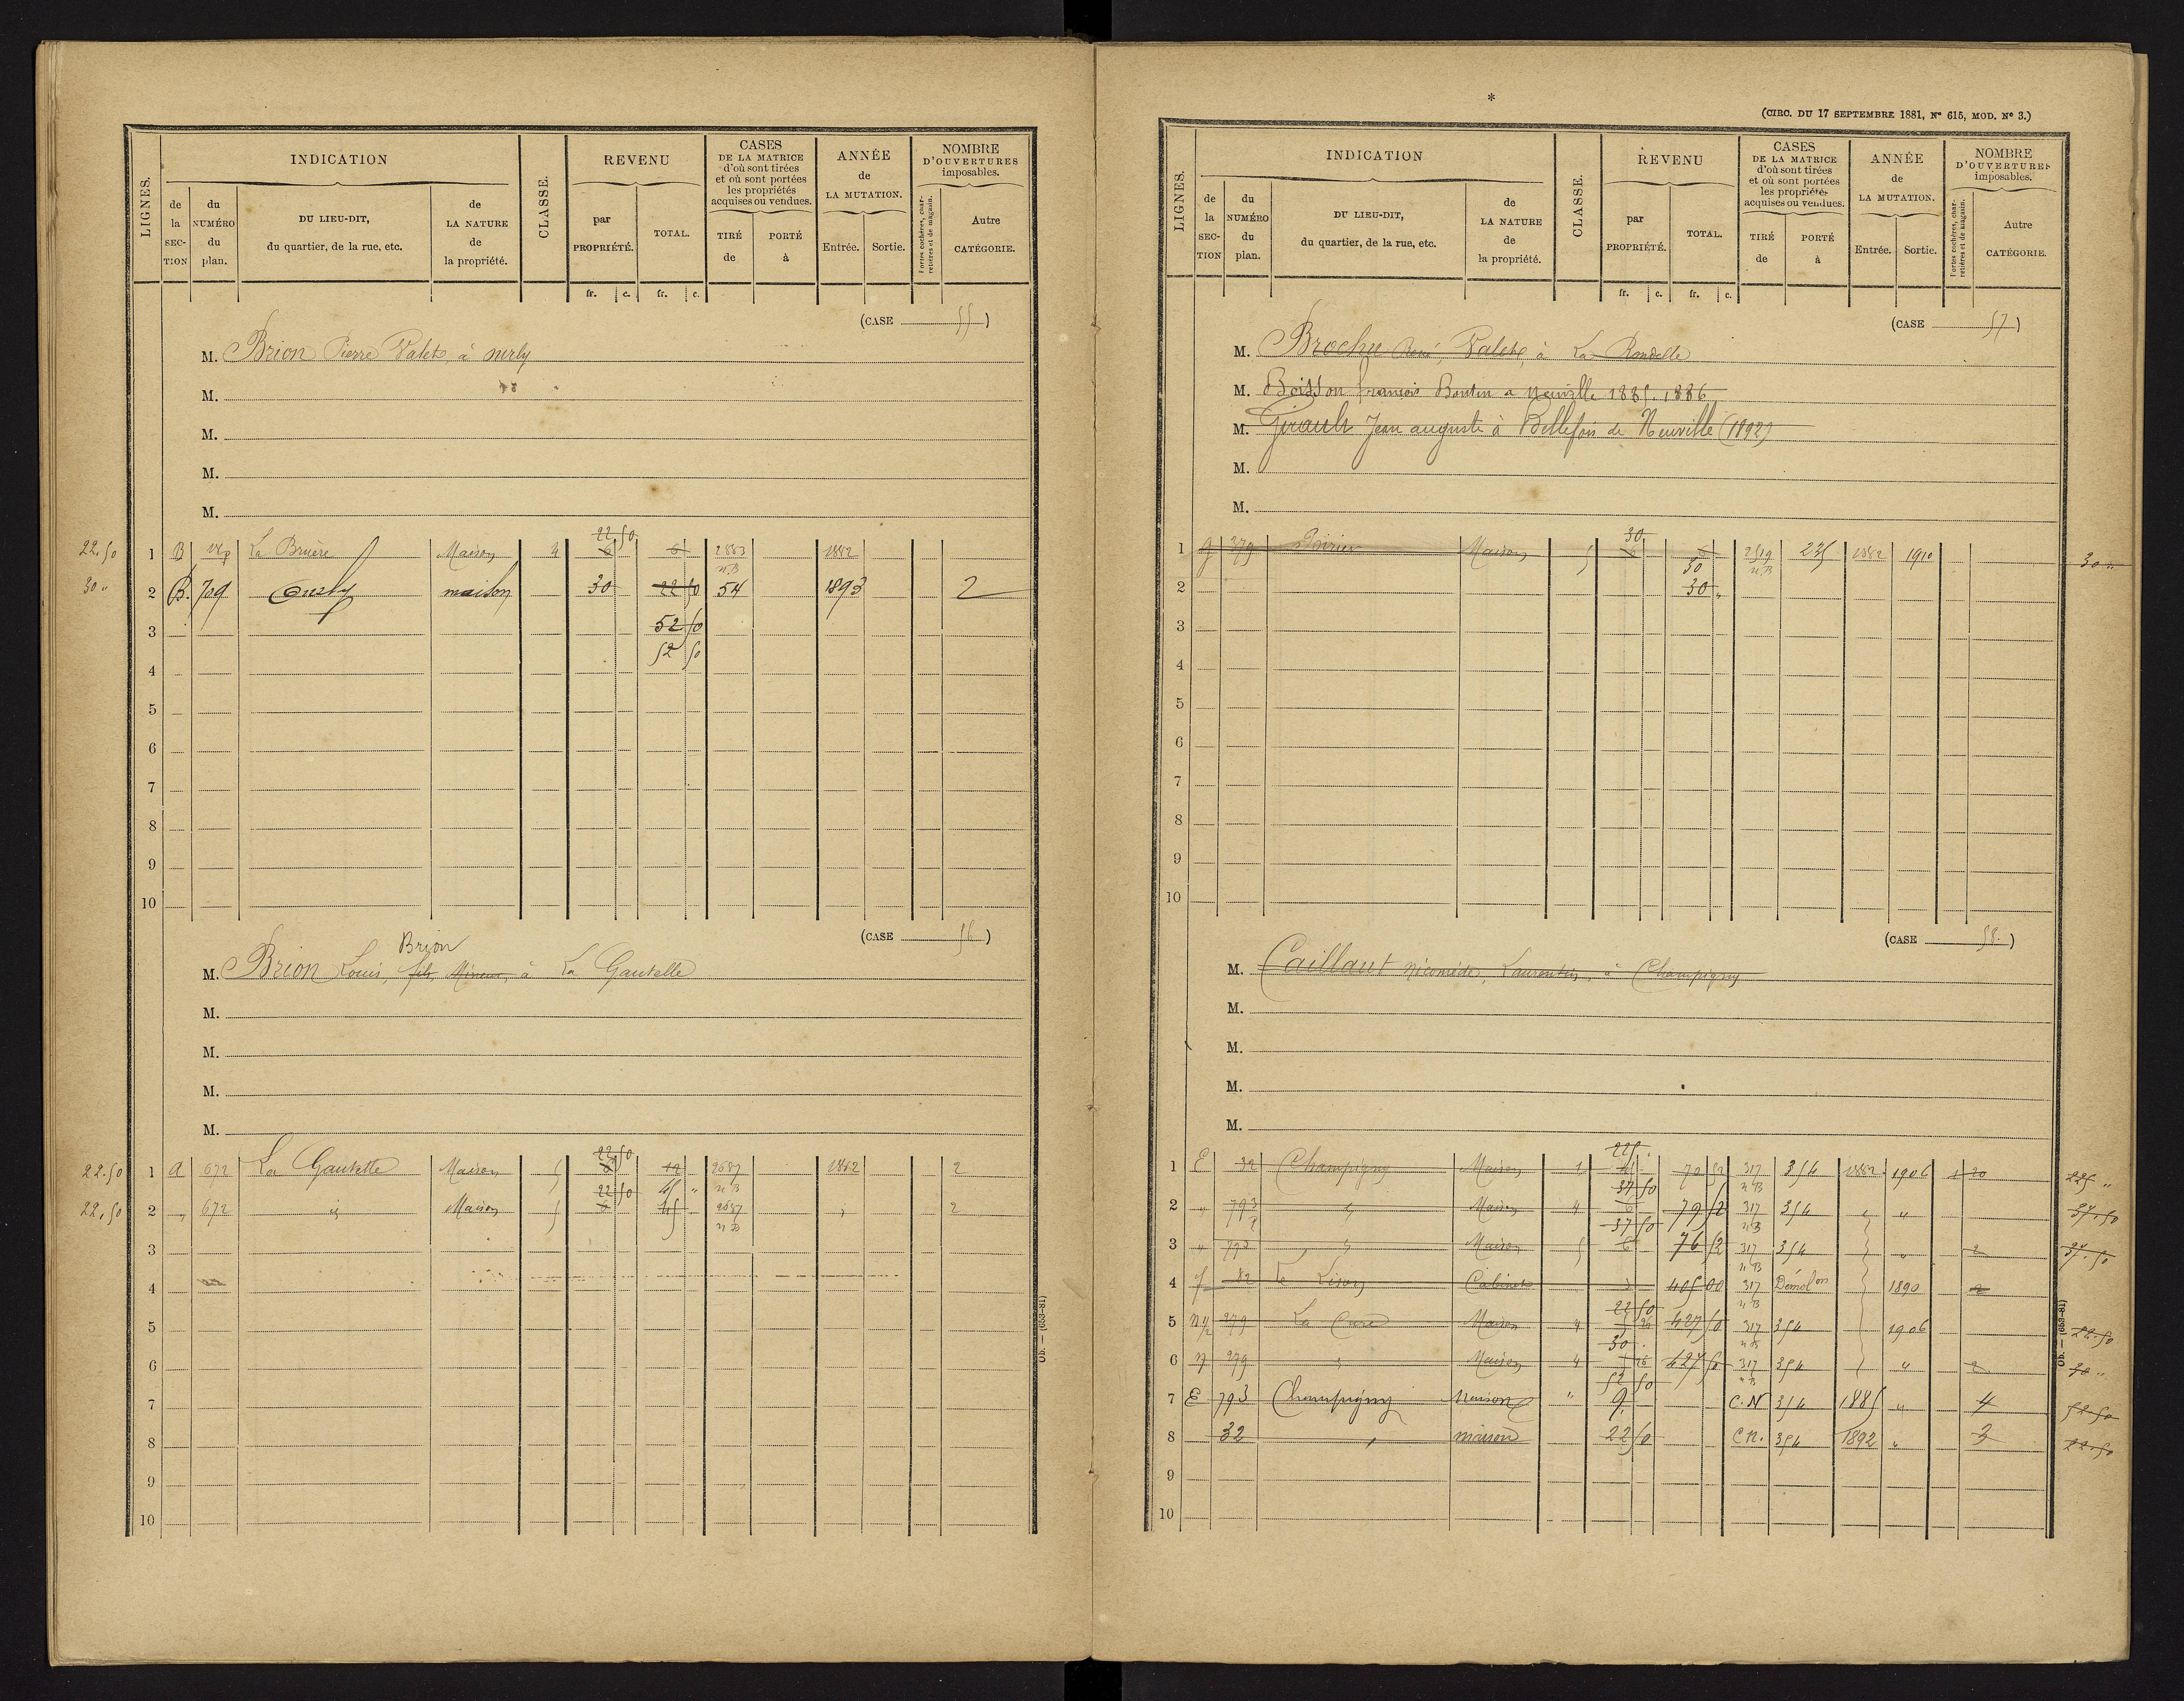 LIGNES.
INDICATION
de la SECTION
du NUMÉRO du plan.
DU LIEU-DIT, du quartier, de la rue, etc.
de LA NATURE de la propriété.
CLASSE.
REVENU
par PROPRIÉTÉ.
TOTAL.
CASES DE LA MATRICE d'où sont tirées et où sont portées les propriétés acquises ou vendues.
TIRÉ de
PORTÉ à
ANNÉE de LA MUTATION.
Entrée.
Sortie.
NOMBRE D'OUVERTURES imposables.
Portes cochères, charretières et de magasin.
Autre CATÉGORIE.
fr. c. fr. c.
(CASE 55)
M. Brion Pierre Valet, à
M.
M.
M.
M.
22 50
22.50 1 B La Bruère Maison 4 6 6 2883 1882
n.B
30 " 2 B. 709 maison 30 22 50 54 1893 2
3 52 50
52 50
4
5
6
7
8
9
10
(CASE 56)
Brion
M. Brion Louis, fils, Mineur, à La Gautelle
M.
M.
M.
M.
22 50
22.50 1 A 672 La Gautelle Maison 5 6 12 2687 1882 2
22 50 45 " n B
22.50 2 " 672 id Maison 5 6 45 2687 " 2
n B
3
4
5
6
7
8
9
10
Ob. — (653-81)
*
(CIRC. DU 17 SEPTEMBRE 1881, N° 615, MOD. N° 3.)
LIGNES.
INDICATION
de la SECTION
du NUMÉRO du plan.
DU LIEU-DIT, du quartier, de la rue, etc.
de LA NATURE de la propriété.
CLASSE.
REVENU
par PROPRIÉTÉ.
TOTAL.
CASES DE LA MATRICE d'où sont tirées et où sont portées les propriétés acquises ou vendues.
TIRÉ de
PORTÉ à
ANNÉE de LA MUTATION.
Entrée.
Sortie.
NOMBRE D'OUVERTURES imposables.
Portes cochères, charretières et de magasin.
Autre CATÉGORIE.
fr. c. fr. c.
(CASE 57)
M. Brochu René, Valet, à La Rondelle
M. Boisson françois Bontin a Neuville 1885.1886
M. Girault Jean auguste à Bellefois de Neuville (1892)
M.
M.
30
1 g 379 Poirier Maison 5 6 6 2519 235 1882 1910 30 "
30 n.B
2 30 "
3
4
5
6
7
8
9
10
(CASE 58.)
M. Caillaut Nicomède, Laurentin, à Champigny
M.
M.
M.
M.
225 .
1 E 32 Champigny Maison 1 79 52 317 354 1882 1906 1 20 225 "
37 50 n B
2 " 793 " Maison 4 6 79 52 317 354 " " 37.50
37 50 n B
3 " 793 " Maison 5 6 76 52 317 354 " 2 37.50
n B
4 f 82 Le Cabinet 3 405 00 317 Démolon 1890 2
22 50 n B
5 279 La Cure Maison 4 26 427 50 317 354 1906 22.50
30 . n B
6 279 " Maison 4 26 427 50 317 354 " 2 30 "
52 50 n B
7 E 793 Champigny maison " 9 C.N 354 1885 " 4 52.50
8 32 " maison 22 50 C.N. 354 1892 " 3 22.50
9
10
Ob. — (653-81)